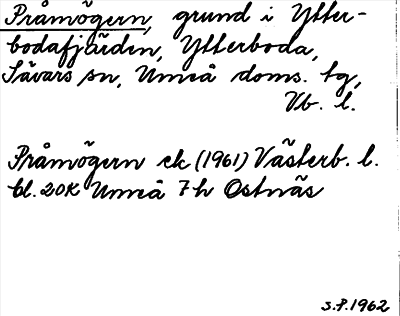 Pråmögern, grund i Ytter-
bodafjärden, Ytterboda,
Sävars sn, Umeå doms. tg,
Vb. l.
Pråmögern ek (1961) Västerb. l.
bl. 20K Umeå 7h Ostnäs
S.P. 1962